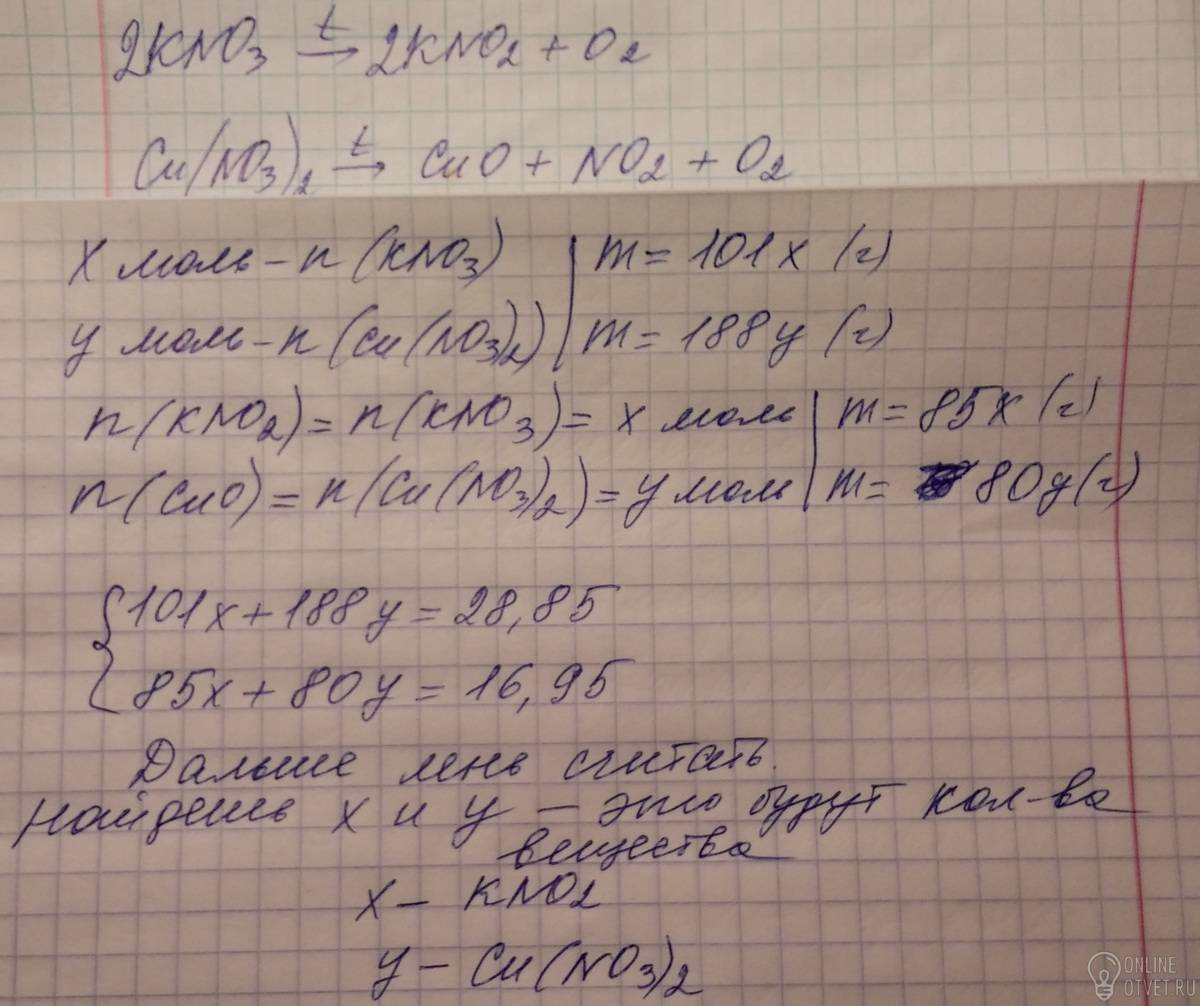 2KNO₃ →ᵗ 2KNO₂ + O₂
Cu(NO₃)₂ →ᵗ CuO + NO₂ + O₂
x моль – n (KNO₃) | m = 101x (г)
y моль – n (Cu(NO₃)₂) | m = 188y (г)
n(KNO₂) = n(KNO₃) = x моль | m = 85x (г)
n(CuO) = n(Cu(NO₃)₂) = y моль | m = 80y(г)
{101x + 188y = 28,85
85x + 80y = 16,95
Дальше лень считать.
Найдешь x и y – это будут кол-ва
вещества
x – KNO₂
y – Cu(NO₃)₂
ONLINE
OTVET.RU